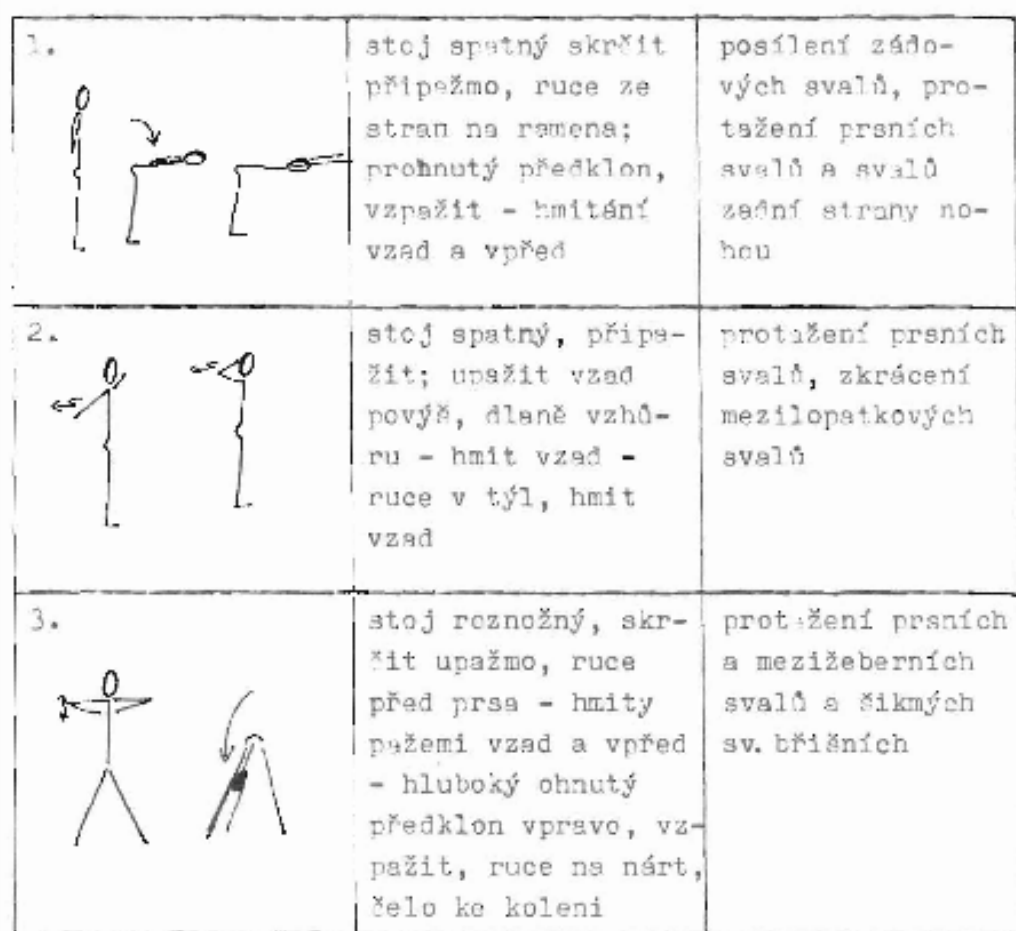 1.
stoj spatný skrčit
připažmo, ruce ze
stran na ramena;
prohnutý předklon,
vzpažit - hmitání
vzad a vpřed
posílení zádo-
vých svalů, pro-
tažení prsních
svalů a svalů
zadní strany no-
hou
2.
stoj spatný, připa-
žit; upažit vzad
povýš, dlaně vzhů-
ru - hmit vzad -
ruce v týl, hmit
vzad
protažení prsních
svalů, zkrácení
mezilopatkových
svalů
3.
stoj roznožný, skr-
čit upažmo, ruce
před prsa - hmity
pažemi vzad a vpřed
- hluboký ohnutý
předklon vpravo, vz-
pažit, ruce na nárt,
čelo ke koleni
protažení prsních
a mezižeberních
svalů a šikmých
sv. břišních